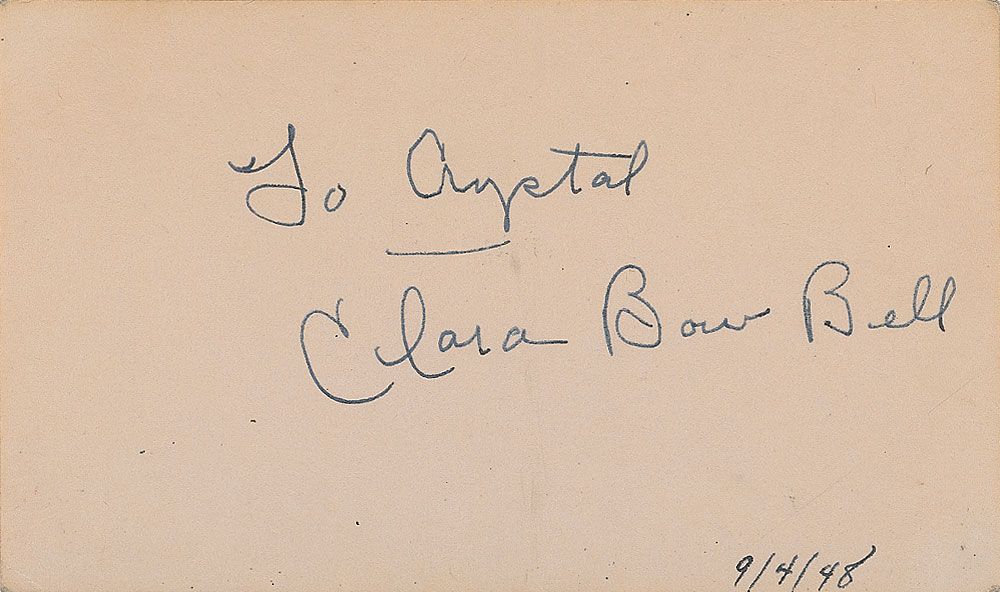 To Crystal
Clara Bow Bell
9/4/48